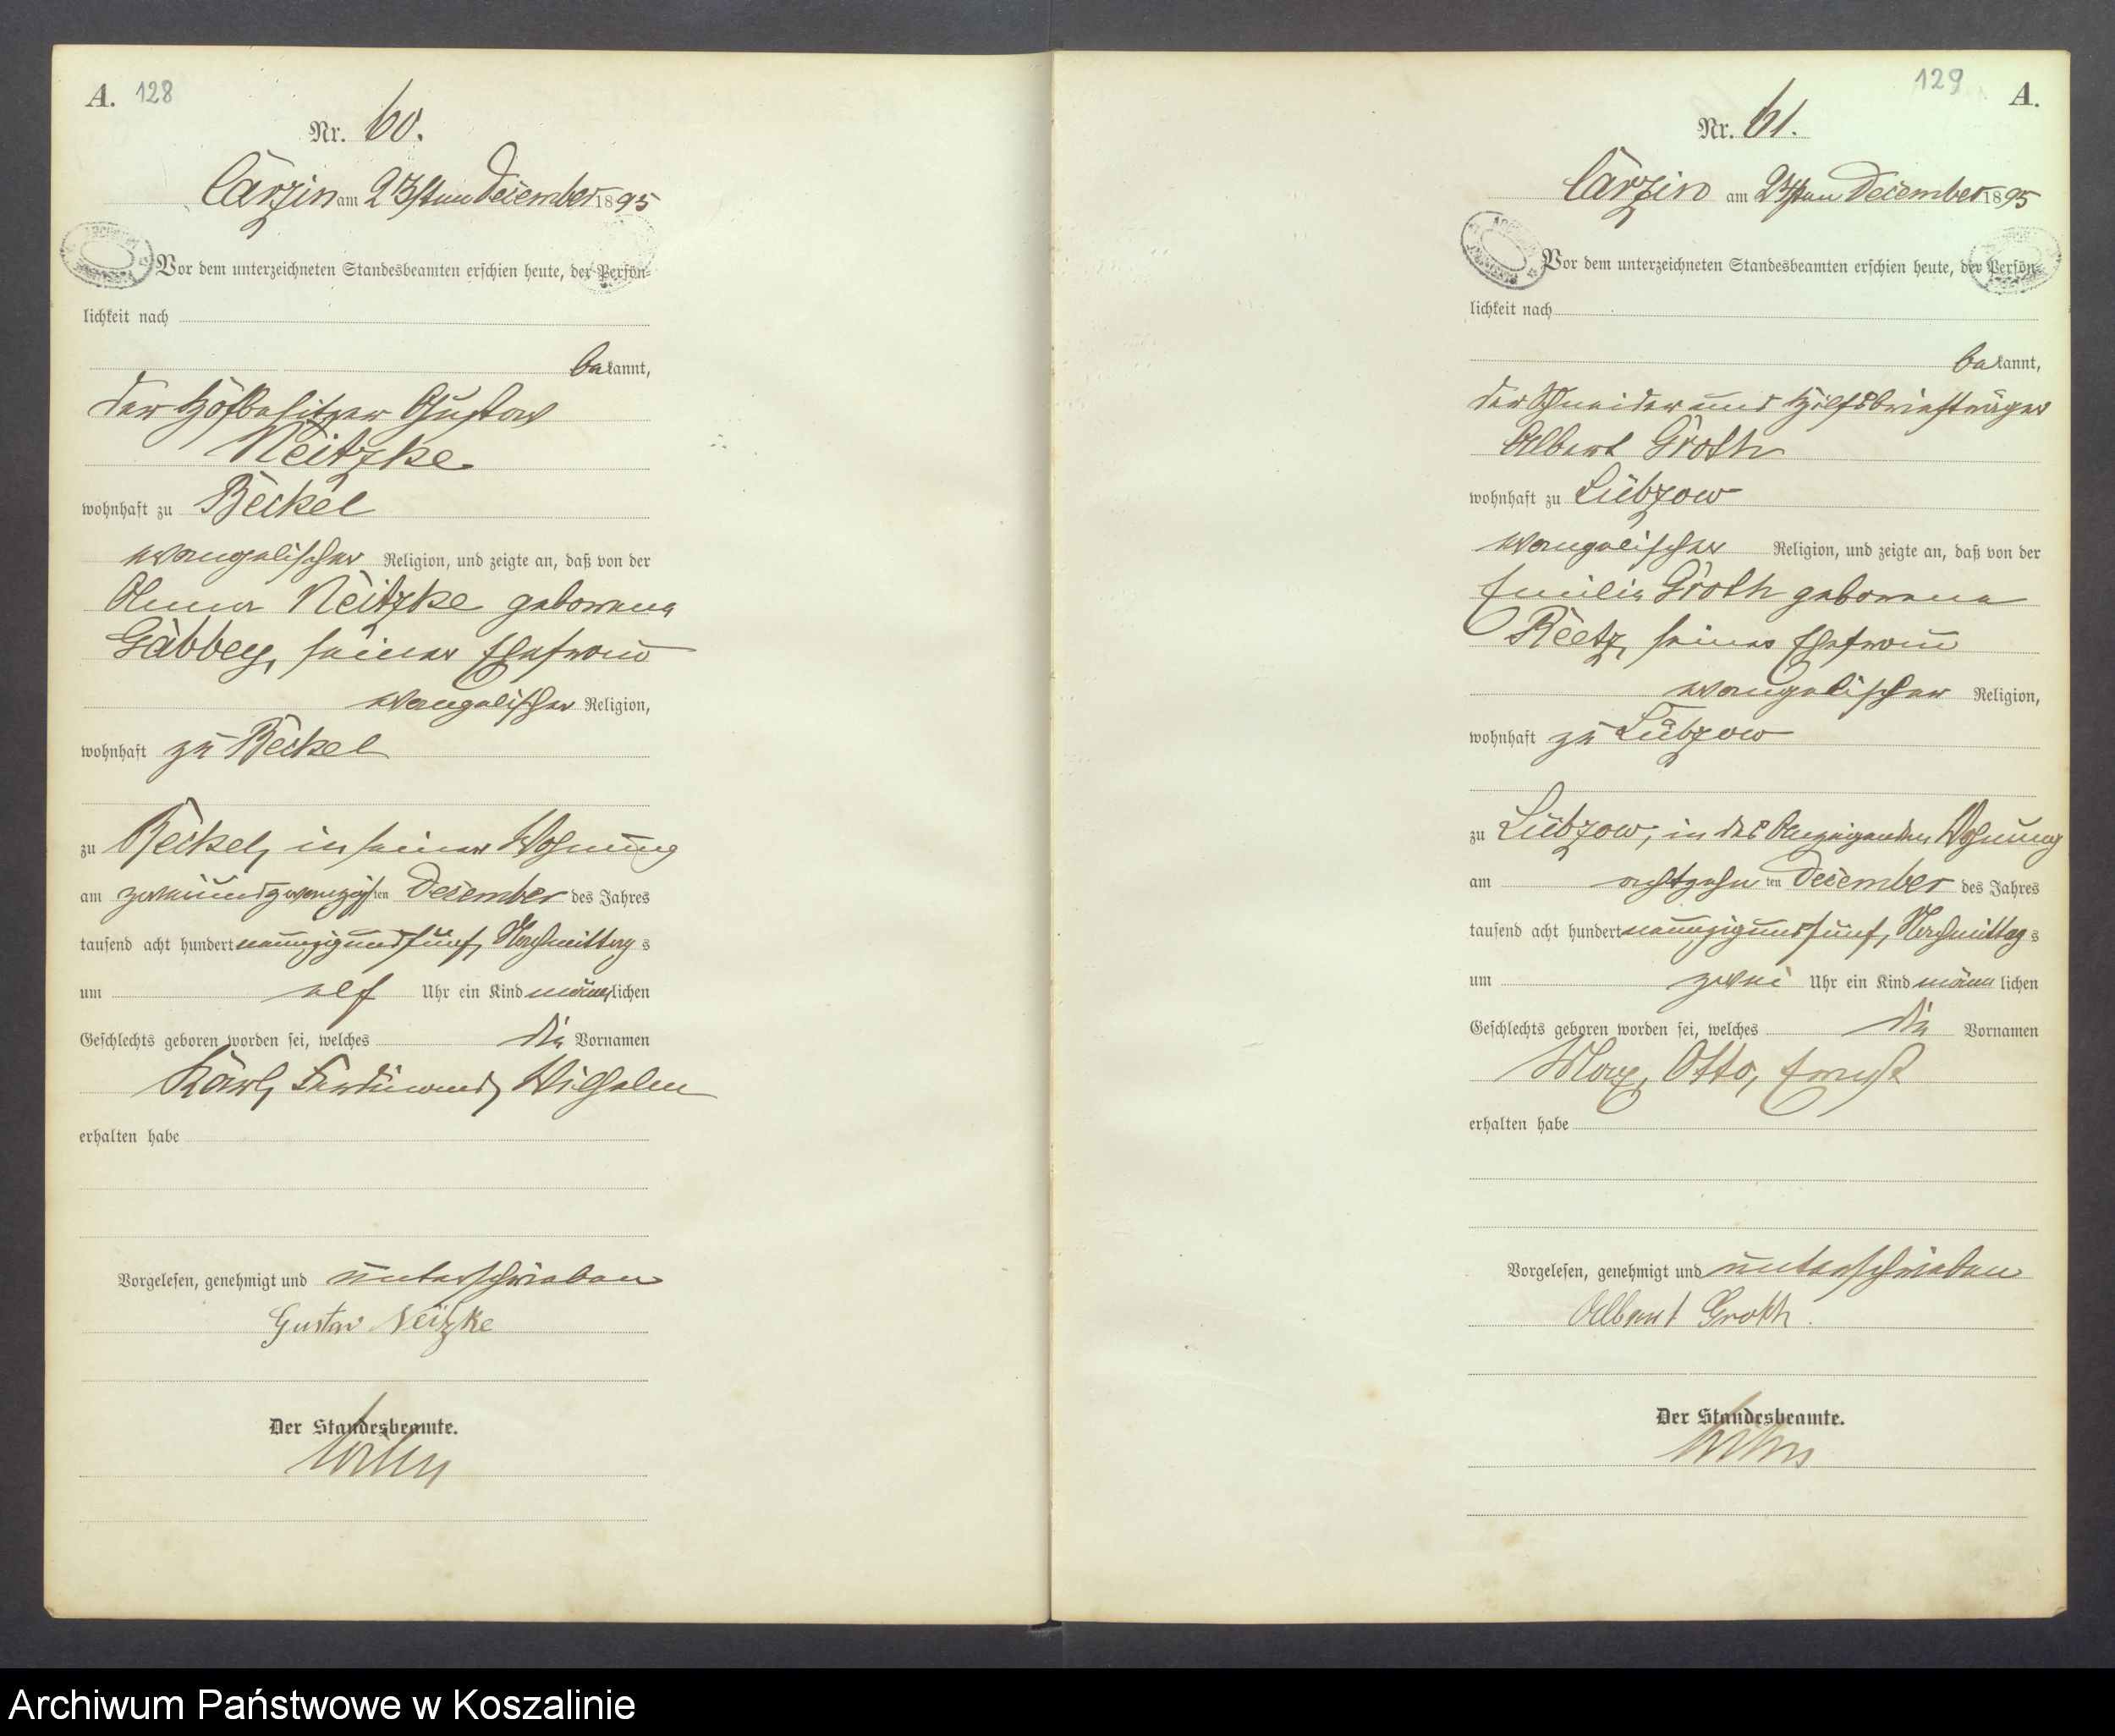 A. 128
Nr. 60.
Carzin am 23sten December 1895
Vor dem unterzeichneten Standesbeamten erschien heute, der Persön-
lichkeit nach
bekannt,
der Hofbesitzer Gustav
Neitzke
wohnhaft zu Beckel
evangelischer Religion, und zeigte an, daß von der
Anna Neitzke geborene
Gabbey, seiner Ehefrau
evangelischer Religion,
wohnhaft zu Beckel
zu Beckel, in seiner Wohnung
am zweiundzwanzigsten December des Jahres
tausend acht hundert neunzigundfünf, Nachmittags
um elf Uhr ein Kind männlichen
Geschlechts geboren worden sei, welches die Vornamen
Karl, Ferdinand, Wilhelm
erhalten habe
Vorgelesen, genehmigt und unterschrieben
Gustav Neitzke
Der Standesbeamte.
129 A.
Nr. 61.
Carzin am December 1895
Vor dem unterzeichneten Standesbeamten erschien heute, der Persön-
lichkeit nach
bekannt,
der Schneider und Hilfsbriefträger
Albert Groth
wohnhaft zu Lübzow
evangelischer Religion, und zeigte an, daß von der
Emilie Groth geborene
Reetz, seiner Ehefrau
evangelischer Religion,
wohnhaft zu Lübzow
zu Lübzow, in des Anzeigenden Wohnung
am achtzehnten December des Jahres
tausend acht hundert neunzigundfünf, Nachmittags
um zwei Uhr ein Kind männlichen
Geschlechts geboren worden sei, welches die Vornamen
Max, Otto, Ernst
erhalten habe
Vorgelesen, genehmigt und unterschrieben
Albert Groth.
Der Standesbeamte.
Archiwum Państwowe w Koszalinie